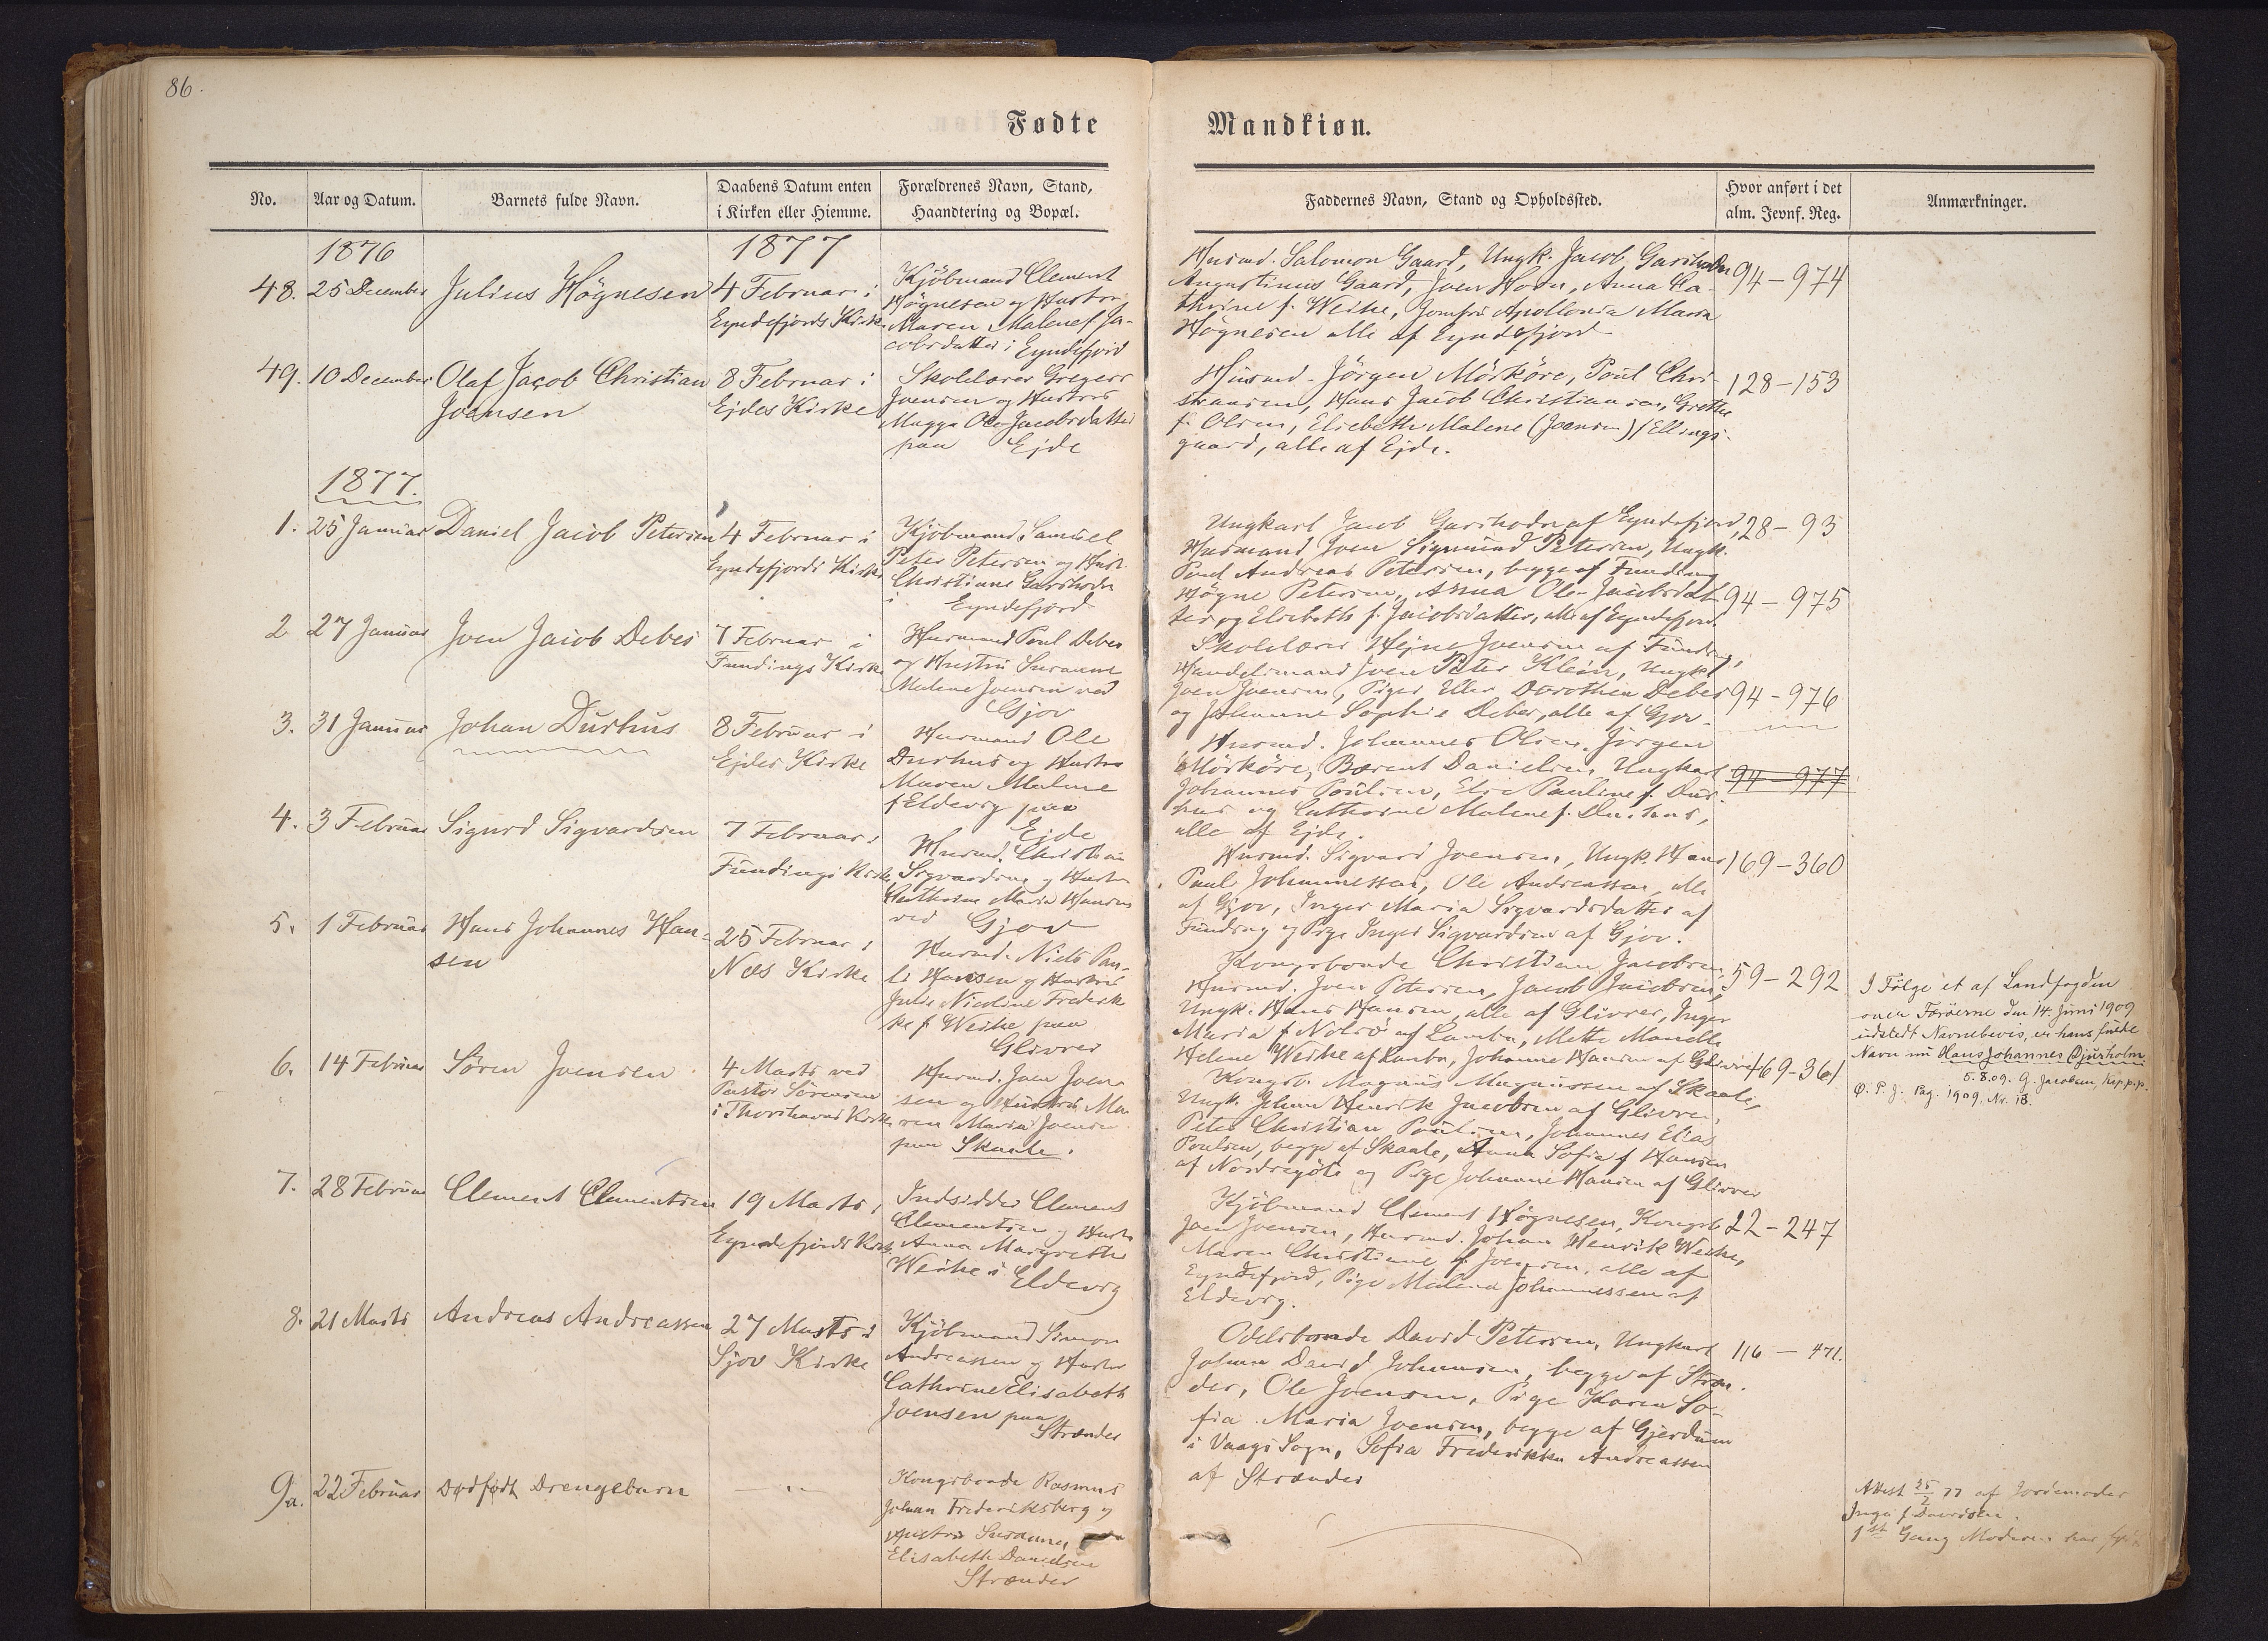 86.
Fødte
Mandkiøn.
No.
Aar og Datum.
Barnets fulde Navn.
Daabens Datum enten
i Kirken eller Hiemme.
Forældrenes Navn, Stand,
Haandtering og Bopæl.
Faddernes Navn, Stand og Opholdssted.
Hvor anført i det
alm. Jevnf. Reg.
Anmærkninger.
1876
1877
48.
25 December
Julius Högnesen
4 Februar i
Eyndefjords Kirke
Kjöbmand Clement
Högnesen og Hustru
Maren Malene f. Ja-
cobsdatter i Eyndefjord
Husmd. Salomon Gaard, Ungk. Jacob Garihodn
Augustinus Gaard, Joen Horn, Anna Ca-
thrine f. Weihe, Jomfru Apollonia Maria
Högnesen alle af Eyndefjord
94-974
49.
10 December
Olaf Jacob Christian
Joensen
8 Februar i
Ejdes Kirke
Skolelærer Gregers
Joensen og Hustru
Magga Ole-Jacobsdatter
paa Ejde
Husmd. Jörgen Mörköre, Poul Chri-
stiansen, Hans Jacob Christiansen, Grethe
f. Olsen, Elsebeth Malene (Joensen) f Ellings-
gaard, alle af Ejde.
128-153
1877.
1.
25 Januar
Daniel Jacob Petersen
4 Februar i
Eyndefjords Kirke
Kjöbmand Samuel
Peter Petersen og Hust.
Christiane Garihodn
i Eyndefjord
Ungkarl Jacob Garihodn af Eyndefjord,
Husmand Joen Sigmund Petersen, Ungk.
Poul Andreas Petersen, begge af Funding
Högne Petersen, Anna Ole-Jacobsdat-
ter og Elsebeth f. Jacobsdatter, alle af Eyndefjord.
28-93
2
27 Januar
Joen Jacob Debes
7 Februar i
Fundings Kirke
Husmand Poul Debes
og Hustru Susanne
Malene Joensen ved
Gjov
Skolelærer Hejne Joensen af Funding,
Handelsmand Joen Peter Klein, Ungk.
Joen Joensen, Piger Ellen Dorothea Debes
og Johanne Sophie Debes, alle af Gjov.
94-975
3.
31 Januar
Johan Durhus
8 Februar i
Ejdes Kirke
Husmand Ole
Durhus og Hustru
Maren Malene
f Eldevig paa
Ejde
Husmd. Johannes Olsen, Jörgen
Mörköre, Berent Danielsen, Ungkarl
Johannes Poulsen, Else Pauline f. Dur-
hus og Cathrine Malene f. Durhus,
alle af Ejde.
94-976
94-977
4.
3 Februar
Sigurd Sigvardsen
7 Februar i
Fundings Kirke
Husmd. Christian
Sigvardsen og Hustru
Cathrine Maria Hansen
ved Gjov
Husmd. Sigvard Joensen, Ungk. Hans
Paul Johannessen, Ole Andreassen, alle
af Gjov, Inger Maria Sigvardsdatter af
Funding og Pige Inger Sigvardsen af Gjov.
169-360
5.
1 Februar
Hans Johannes Han-
sen
25 Februar i
Næs Kirke
Husmd. Niels Pau-
li Hansen og Hustru
Julie Nicoline Frederik-
ke f Weihe paa
Glivrer
Kongsbonde Christian Jacobsen,
Husmd. Joen Petersen, Jacob Jacobsen,
Ungk. Hans Hansen, alle af Glivrer, Inger
Maria f Nolsö af Lamba, Mette
Helene Weihe af Lamba, Johanne Hansen af Glivrer
59-292
I Fölge et af Landfogden
over Færöerne den 14. Juni 1909
udstedt Navnebevis, er hans fulde
Navn nu Hans Johannes Djurholm
5.8.09. G. Jacobsen,
Ø. P. J. Pag. 1909. Nr. 18.
6.
14 Februar
Sören Joensen
4 Marts ved
Pastor Sörensen
i Thorshavns Kirke
Husmd. Joen Joen-
sen og Hustru Ma-
ren Maria Joensen
paa Skaale.
Kongsb. Magnus Magnussen af Skaale,
Ungk. Johan Henrik Jacobsen af Glivrer,
Peter Christian Poulsen, Johannes Elias
Poulsen, begge af Skaale, Anna Sofia f Hansen
af Nordregöte og Pige Johanne Hansen af Glivrer
169-361
7.
28 Februar
Clement Clementsen
19 Marts i
Eyndefjords Kirke
Indsidder Clement
Clementsen og Hustru
Anna Margrethe
Weihe i Eldevig
Kjöbmand Clement Högnesen, Kongsb.
Joen Joensen, Husmd. Johan Henrik Weihe,
Maren Christiane f. Joensen, alle af
Eyndefjord, Pige Malene Johannessen af
Eldevig.
22-247
8.
21 Marts
Andreas Andreassen
27 Marts i
Sjov Kirke
Kjöbmand Simon
Andreassen og Hustru
Cathrine Elisabeth
Joensen paa
Strænder
Odelsbonde David Petersen, Ungkarl
Johan David Johannesen, begge af Stræn-
der, Ole Joensen, Pige Karen So-
fia Maria Joensen, begge af Gjerdum
i Vaags Sogn, Sofia Frederikke Andreassen
af Strænder
116 - 471.
9a.
22 Februar
Dødfødt Drengebarn
- " -
Kongsbonde Rasmus
Johan Frederiksberg og
Hustru Susanne
Elisabeth Danielsen
Strænder
Attest 25/2 77 af Jordemoder
Inga f Davidsen.
1st Gang Moderen har født